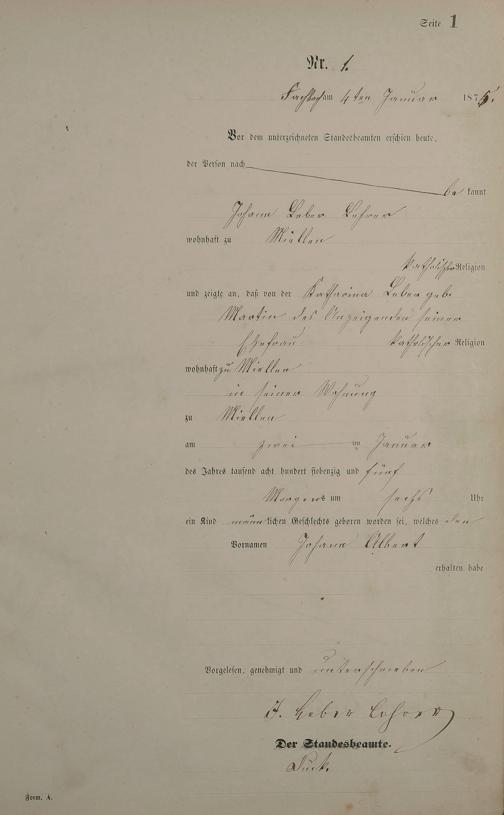 Seite 1
Nr. 1.
Fachbach am 4ten Januar 1875.
Vor dem unterzeichneten Standesbeamten erschien heute,
der Person nach
be kannt
Johann Leber Lehrer
wohnhaft zu Miellen
katholischer Religion
und zeigte an, daß von der Katharina Leber geb.
Martin des Anzeigenden seiner
Ehefrau katholischer Religion
wohnhaft zu Miellen
in seiner Wohnung
zu Miellen
am zwei ten Januar
des Jahres tausend acht hundert siebenzig und fünf
Morgens um sechs Uhr
ein Kind männlichen Geschlechts geboren worden sei, welches den
Vornamen Johann Albert
erhalten habe
Vorgelesen, genehmigt und unterschrieben
J. Leber Lehrer
Der Standesbeamte.
Form. A.